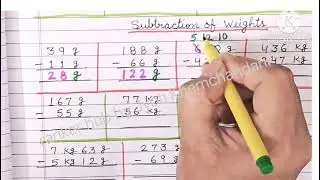 Subtraction of Weights
5 12 10
39 g 188 g 436 kg
- 11 g - 66 g
28 g 122 g
167 g 77 kg
- 55 g - 56 kg
7 kg 63 g 273 g
- 5 kg 12 g - 69 g